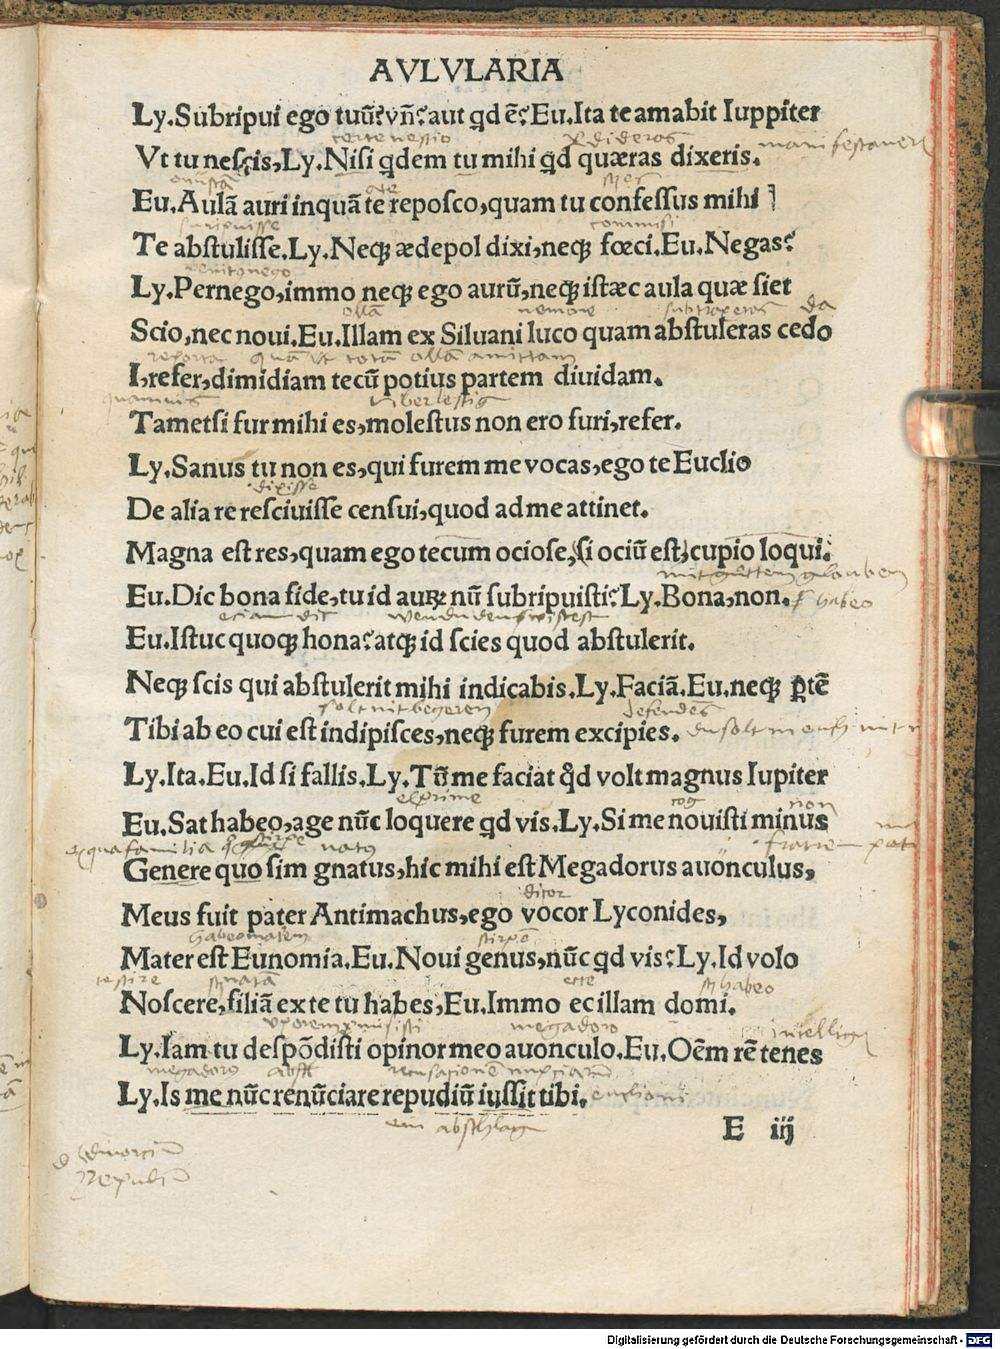 AVLVLARIA
Ly.Subripui ego tuũ?vñ?aut qd ẽ?Eu.Ita te amabit Iuppiter
certe nescio
Vt tu nescis,Ly.Nisi qdem tu mihi qd quæras dixeris.
Eu.Aulã auri inquã te reposco,quam tu confessus mihi
commisi
Te abstulisse.Ly.Neqꝫ ædepol dixi,neqꝫ fœci.Eu.Negas?
Ly.Pernego,immo neqꝫ ego aurũ,neqꝫ istæc aula quæ siet
ollã
da
Scio,nec noui.Eu.Illam ex Siluani luco quam abstuleras cedo
reporta quã vt totã ollã amittam
I,refer,dimidiam tecũ potius partem diuidam.
quamuis
Tametsi fur mihi es,molestus non ero furi,refer.
Ly.Sanus tu non es,qui furem me vocas,ego te Euclio
dixisse
De alia re resciuisse censui,quod ad me attinet.
Magna est res,quam ego tecum ociose,si ociũ est,cupio loqui.
mit guttem glauben
Eu.Dic bona fide,tu id auꝝ nũ subripuisti?Ly.Bona,non.
habeo
Eu.Istuc quoqꝫ hona?atqꝫ id scies quod abstulerit.
Neqꝫ scis qui abstulerit mihi indicabis.Ly.Faciã.Eu.neqꝫ ꝑtẽ
defendes
Tibi ab eo cui est indipisces,neqꝫ furem excipies.
Ly.Ita.Eu.Id si fallis.Ly.Tũ me faciat qd volt magnus Iupiter
non
Eu.Sat habeo,age nũc loquere qd vis.Ly.Si me nouisti minus
ex qua familia
natus
Genere quo sim gnatus,hic mihi est Megadorus auonculus,
dicor
Meus fuit pater Antimachus,ego vocor Lyconides,
Mater est Eunomia.Eu.Noui genus,nũc qd vis?Ly.Id volo
habeo
Noscere,filiã ex te tu habes,Eu.Immo ec illam domi.
megadoro
Ly.Iam tu despõdisti opinor meo auonculo.Eu.Oẽm rẽ tenes
megadorus
Ly.Is me nũc renũciare repudiũ iussit tibi.
E iij
Digitalisierung gefördert durch die Deutsche Forschungsgemeinschaft - DFG